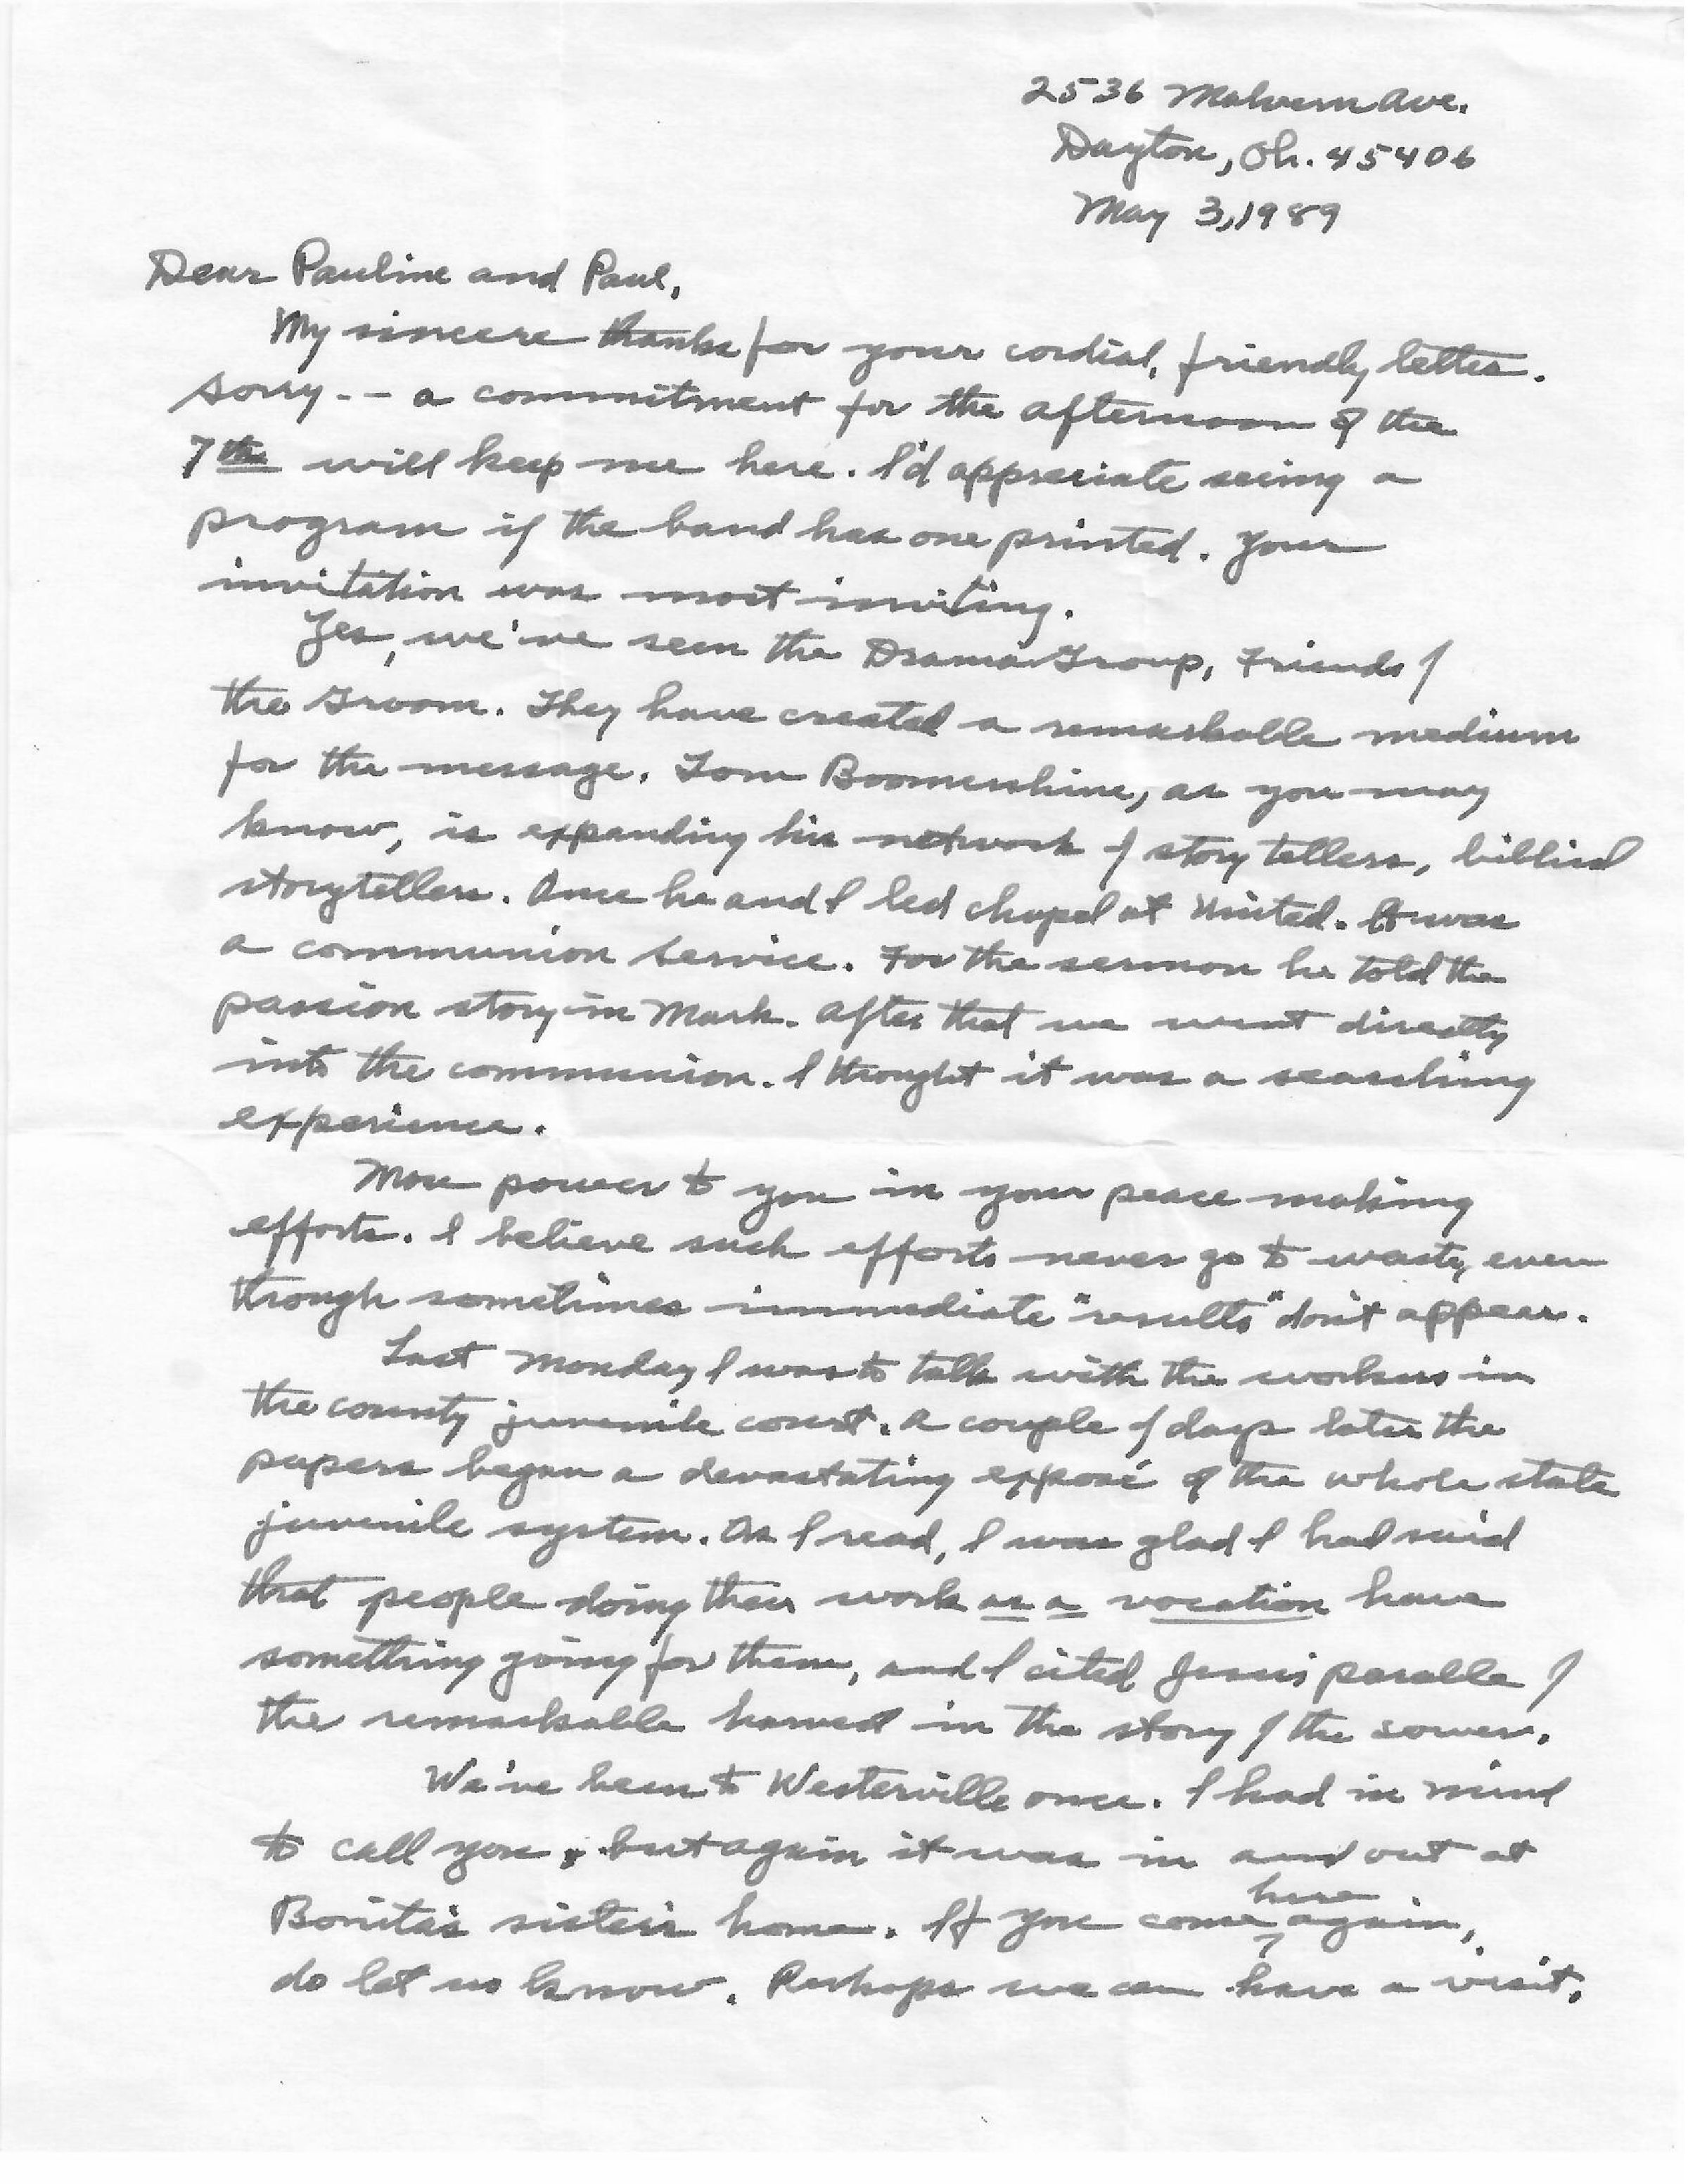 2536 Malvern Ave.
Dayton, Oh. 45406
May 3, 1989
Dear Pauline and Paul,
My sincere thanks for your cordial, friendly letter.
Sorry -- a commitment for the afternoon of the
7th will keep me here. I'd appreciate seeing a
program if the band has one printed. Your
invitation was most inviting.
Yes, we've seen the Drama Group, Friends of
the Groom. They have created a remarkable medium
for the message. Tom Boomershine, as you may
know, is expanding his network of story tellers, biblical
storytellers. Once he and I led chapel at United. It was
a communion service. For the sermon he told the
passion story in Mark. After that we went directly
into the communion. I thought it was a searching
experience.
More power to you in your peace making
efforts. I believe such efforts never go to waste, even
though sometimes immediate "results" don't appear.
Last Monday I was to talk with the workers in
the county juvenile court. A couple of days later the
papers began a devastating exposé of the whole state
juvenile system. As I read, I was glad I had said
that people doing their work as a vocation have
something going for them, and I cited Jesus' parable of
the remarkable harvest in the story of the sower.
We've been to Westerville once. I had in mind
to call you, but again it was in and out at
Bonita's sister's home. If you come here again,
do let us know. Perhaps we can have a visit.